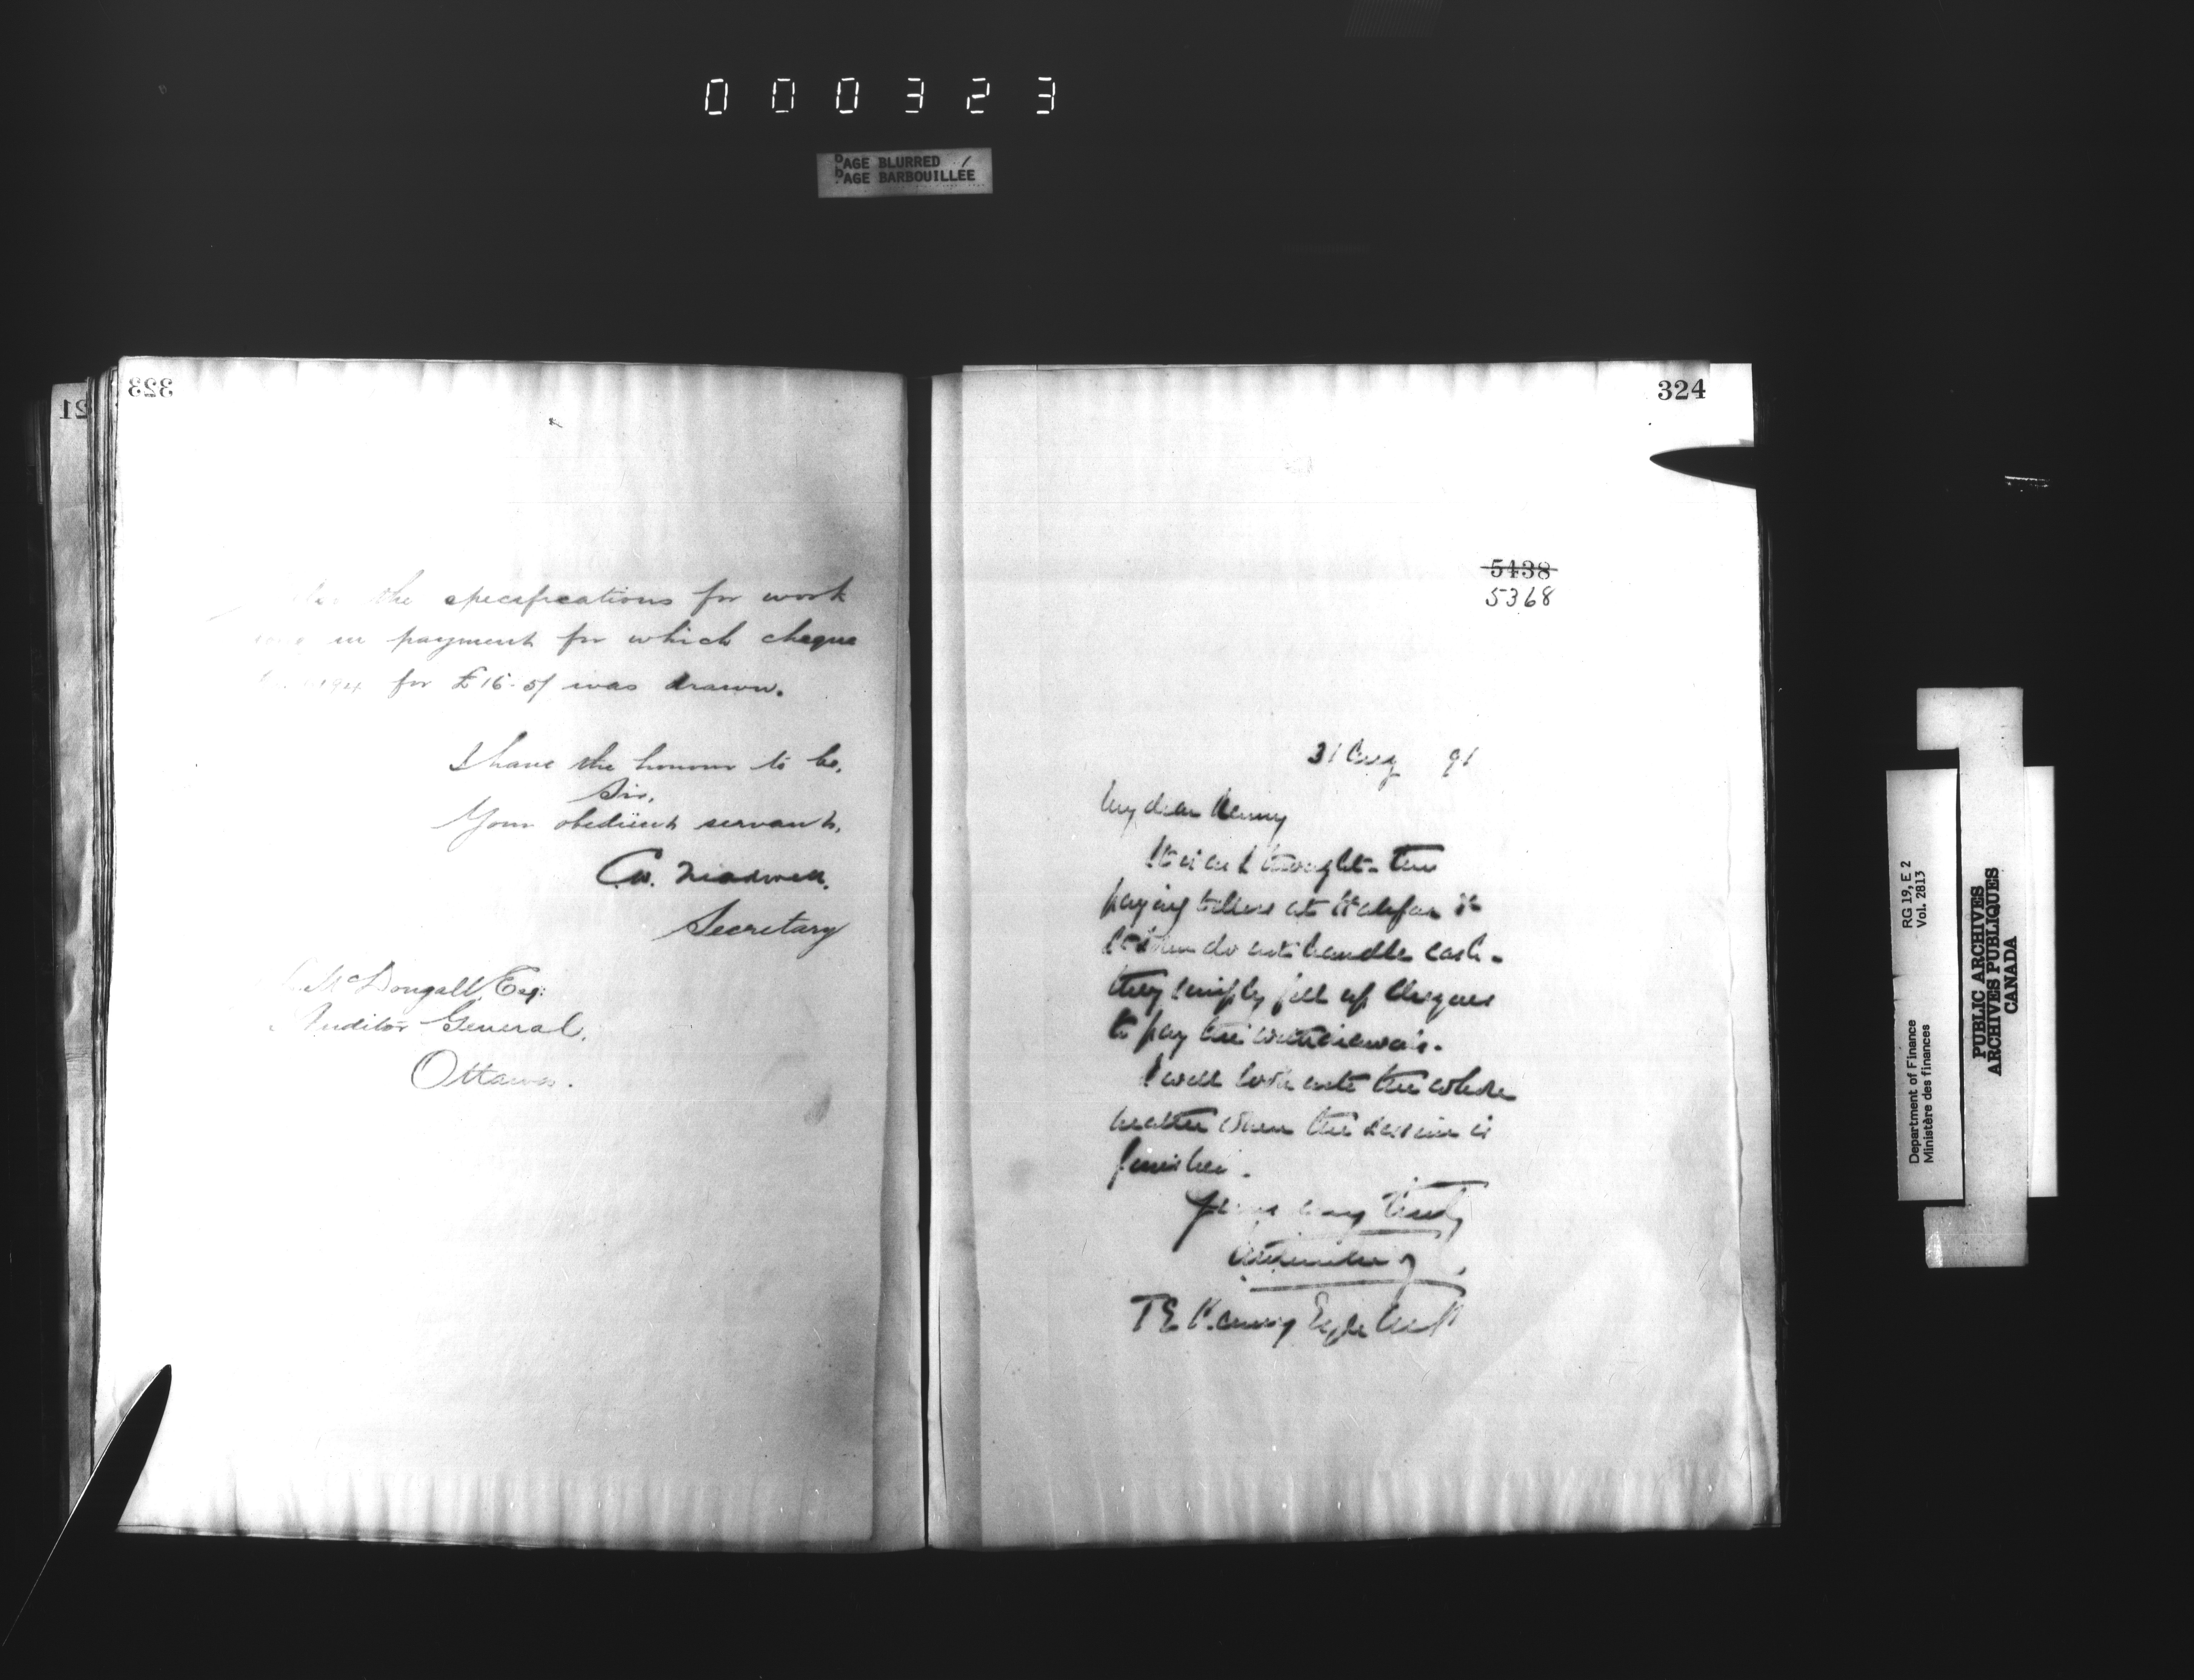 000323
PAGE BLURRED
PAGE BARBOUILLÉE
323
21
the specifications for work
in payment for which cheque
for £16-5/ was drawn.
I have the honour to be,
Sir,
Your obedient servant,
Secretary
McDougall, Esq:
Auditor General,
Ottawa.
324
5438
5368
31 Aug 91
My dear Kenny
It is as I thought - the
paying tellers at Halifax &
St John do not handle cash -
they simply fill up cheques
to pay the withdrawals.
I will look into the whole
matter when the session is
finished.
Yours very truly
T E Kenny Esqre
RG 19, E 2
Vol. 2813
Department of Finance
Ministère des finances
PUBLIC ARCHIVES
ARCHIVES PUBLIQUES
CANADA